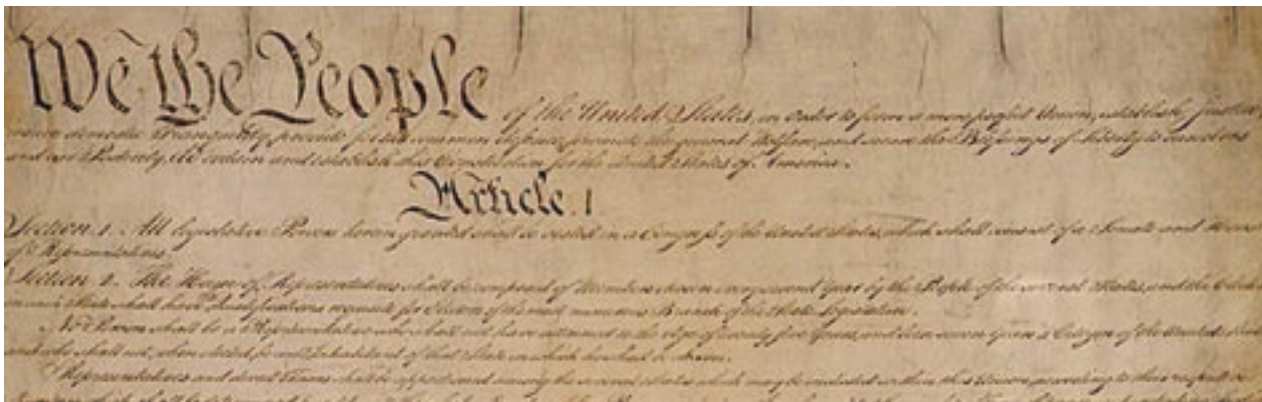 We the People of the United States, in Order to form a more perfect Union, establish Justice,
insure domestic Tranquility, provide for the common defence, promote the general Welfare, and secure the Blessings of Liberty to ourselves
and our Posterity, do ordain and establish this Constitution for the United States of America.
Article. I.
Section. 1. All legislative Powers herein granted shall be vested in a Congress of the United States, which shall consist of a Senate and House
of Representatives.
Section. 2. The House of Representatives shall be composed of Members chosen every second Year by the People of the several States, and the Electors
in each State shall have Qualifications requisite for Electors of the most numerous Branch of the State Legislature.
No Person shall be a Representative who shall not have attained to the Age of twenty five Years, and been seven Years a Citizen of the United States,
and who shall not, when elected, be an Inhabitant of that State in which he shall be chosen.
Representatives and direct Taxes shall be apportioned among the several States which may be included within this Union, according to their respective